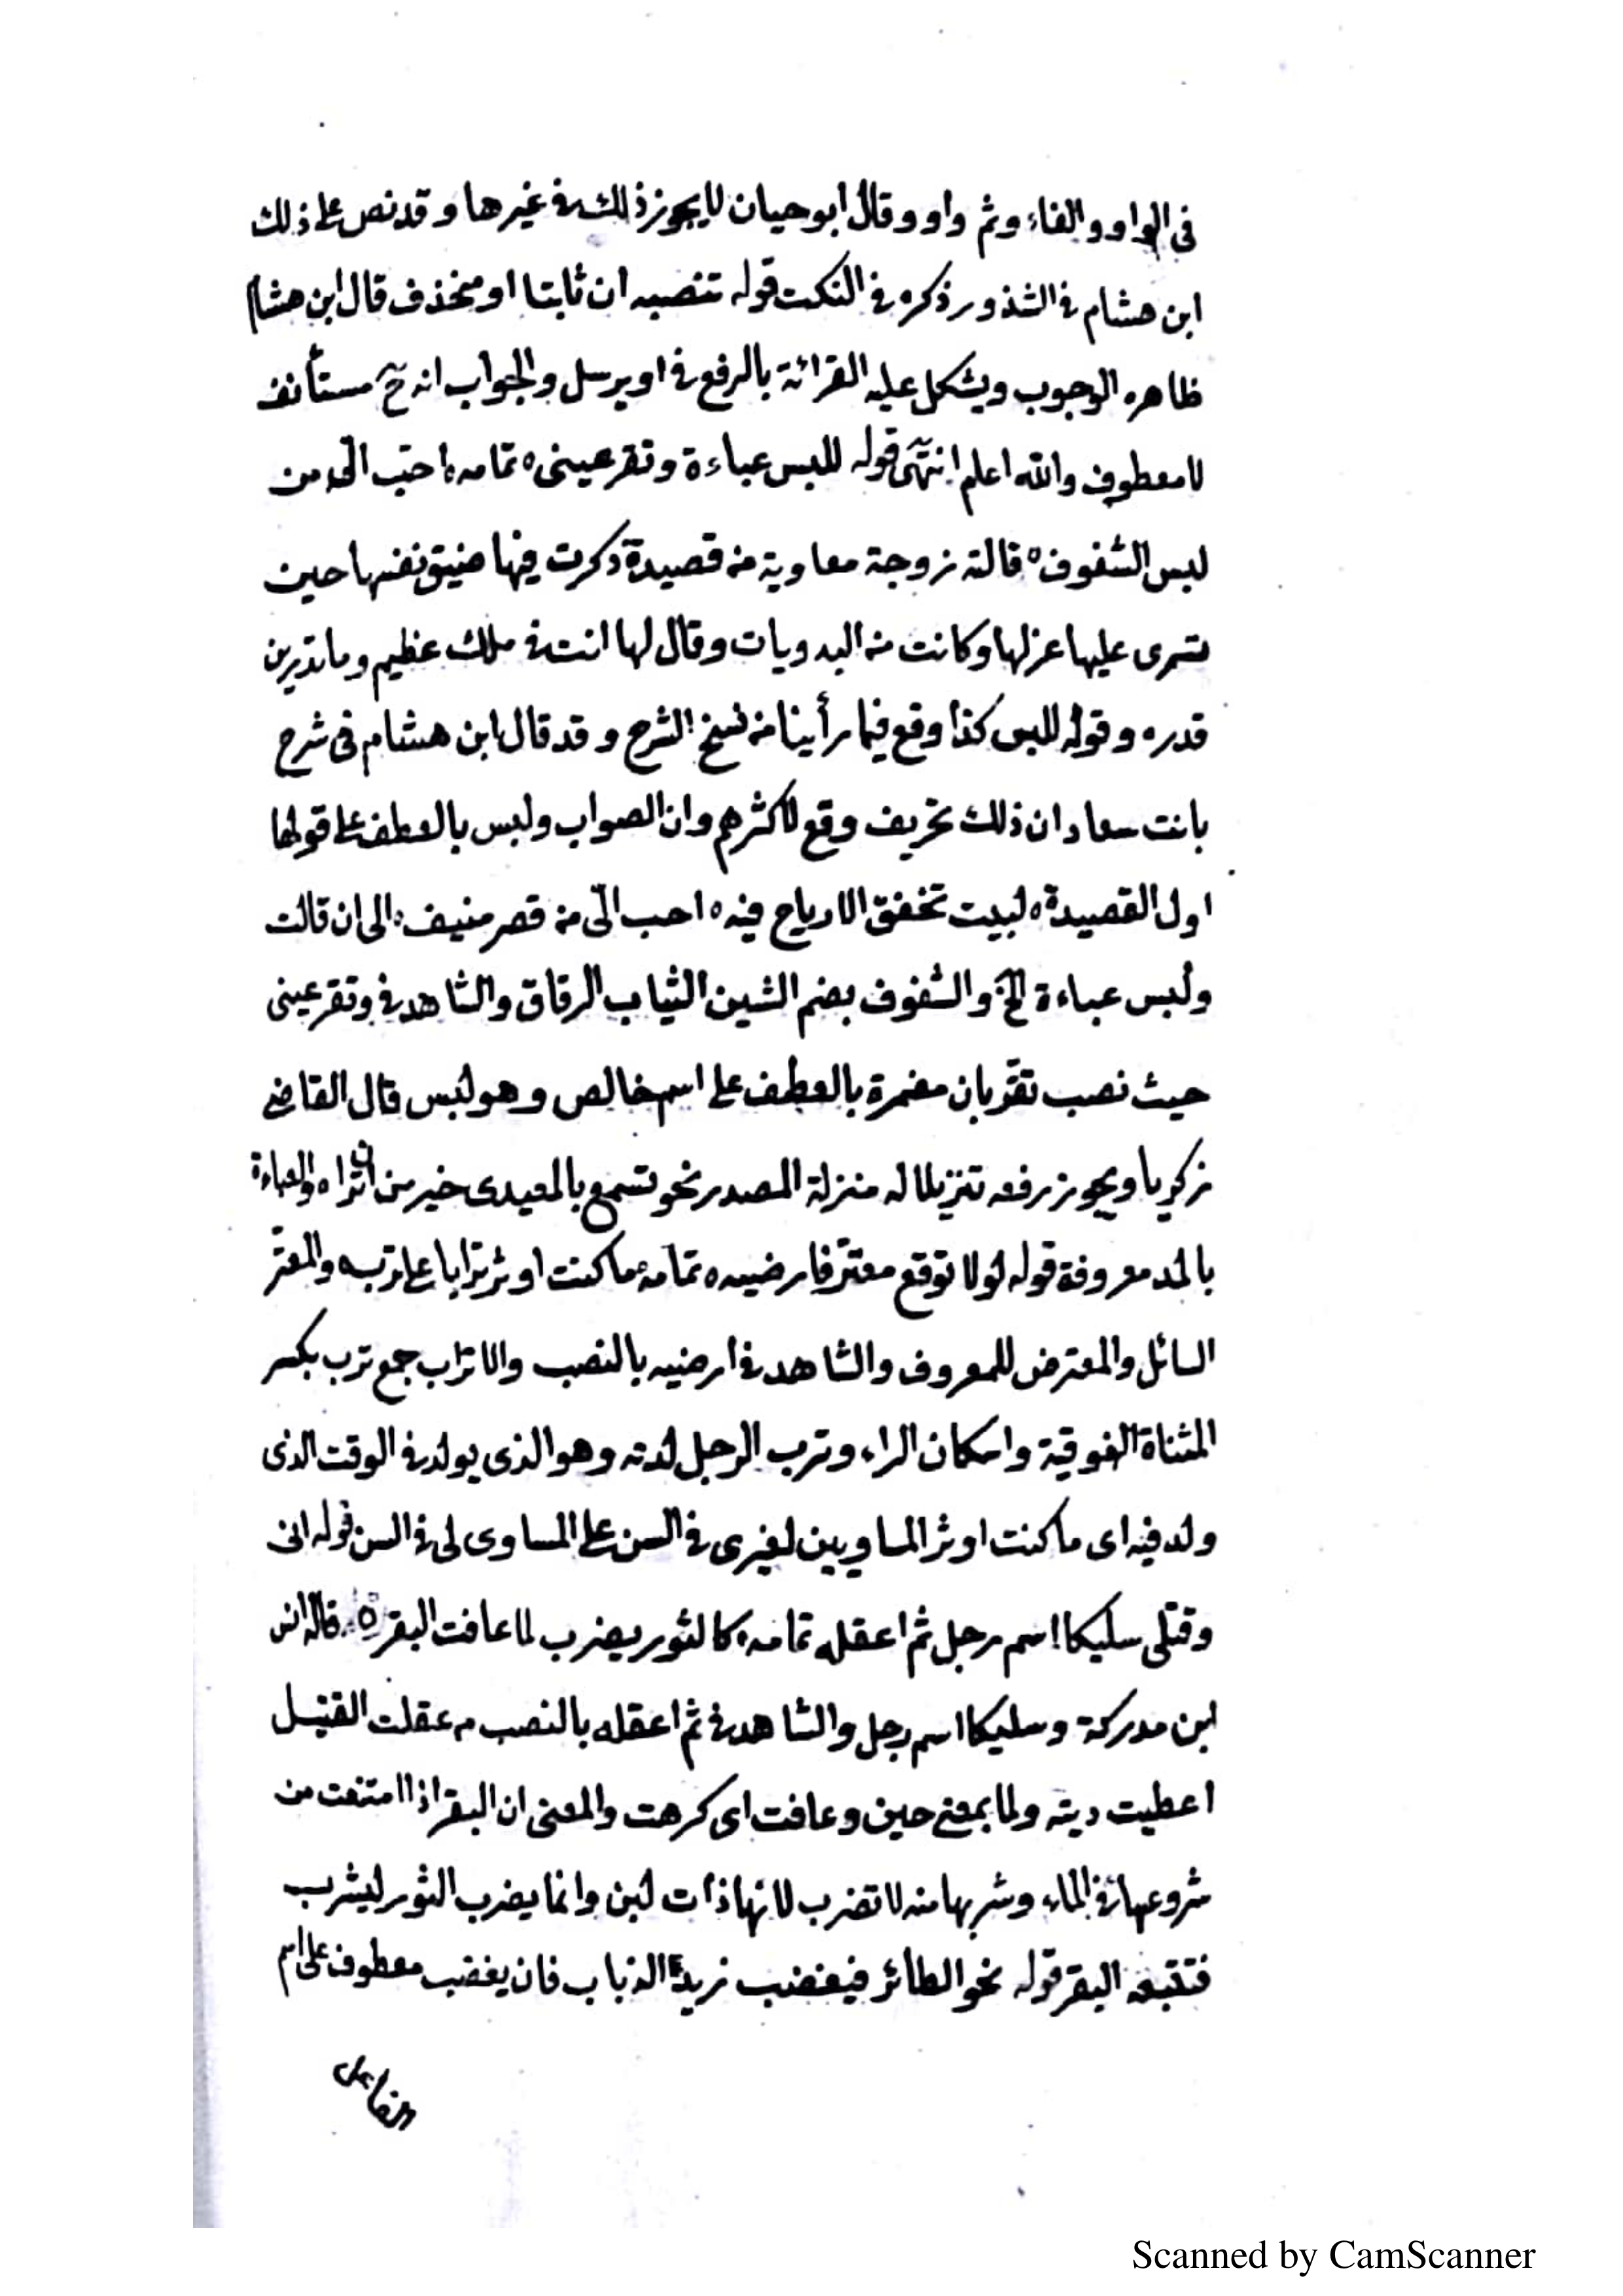 فى الواو والفاء وثم واو وقال ابوحيان لايجوز ذلك فى غيرها وقد نص على ذلك
ابن هشام فى الشذور ذكره فى النكت قوله تنصبه ان ثابتا او منحذف قال ابن هشام
ظاهره الوجوب ويشكل عليه القرائة بالرفع فى او يرسل والجواب انه ح مستأنف
لا معطوف والله اعلم انتهى قوله للبس عباءة وتقر عينى ه تمامه ه احب الى من
لبس الشفوف ه قالته زوجة معاوية من قصيدة ذكرت فيها ضيق نفسها حين
تسرى عليها عزلها وكانت من البدويات وقال لها انت فى ملك عظيم وما تدرين
قدره وقوله للبس كذا وقع فيما رأينا من نسخ الشرح وقد قال ابن هشام فى شرح
بانت سعاد ان ذلك تحريف وقع لاكثرهم وان الصواب ولبس بالعطف على قولها
اول القصيدة ه لبيت تخفق الارياح فيه ه احب الىّ من قصر منيف ه الى ان قالت
ولبس عباءة الخ والشفوف بضم الشين الثياب الرقاق والشاهد فى وتقر عينى
حيث نصب تقرّ بان مضمرة بالعطف على اسم خالص وهو لبس قال القاضى
زكريا ويجوز رفعه تنزيلا له منزلة المصدر نحو تسمع بالمعيدى خير من ان تراه والعباءة
بالمد معروفة قوله لولا توقع معترّ فارضيه ه تمامه ه ما كنت اوثر ترابا على ترب ه والمعترّ
السائل والمعترض للمعروف والشاهد فى ارضيه بالنصب والاتراب جمع ترب بكسر
المثناة الفوقية واسكان الراء وترب الرجل لدته وهو الذى يولد فى الوقت الذى
ولد فيه اى ما كنت اوثر المساويين لغيرى فى السن على المساوى لى فى السن قوله انى
وقتلى سليكا اسم رجل ثم اعقله تمامه ه كالثور يضرب لما عافت البقر ه قاله انس
ابن مدركة وسليكا اسم رجل والشاهد فى ثم اعقله بالنصب م عقلت القتيل
اعطيت ديته ولما بمعنى حين وعافت اى كرهت والمعنى ان البقر اذا امتنعت من
شروعها فى الماء وشربها منه لا تضرب لانها ذات لبن وانما يضرب الثور ليشرب
فتتبعه البقر قوله نحو الطائر فيغضب زيد الذباب فان يغضب معطوف على اسم
الفاعل
Scanned by CamScanner